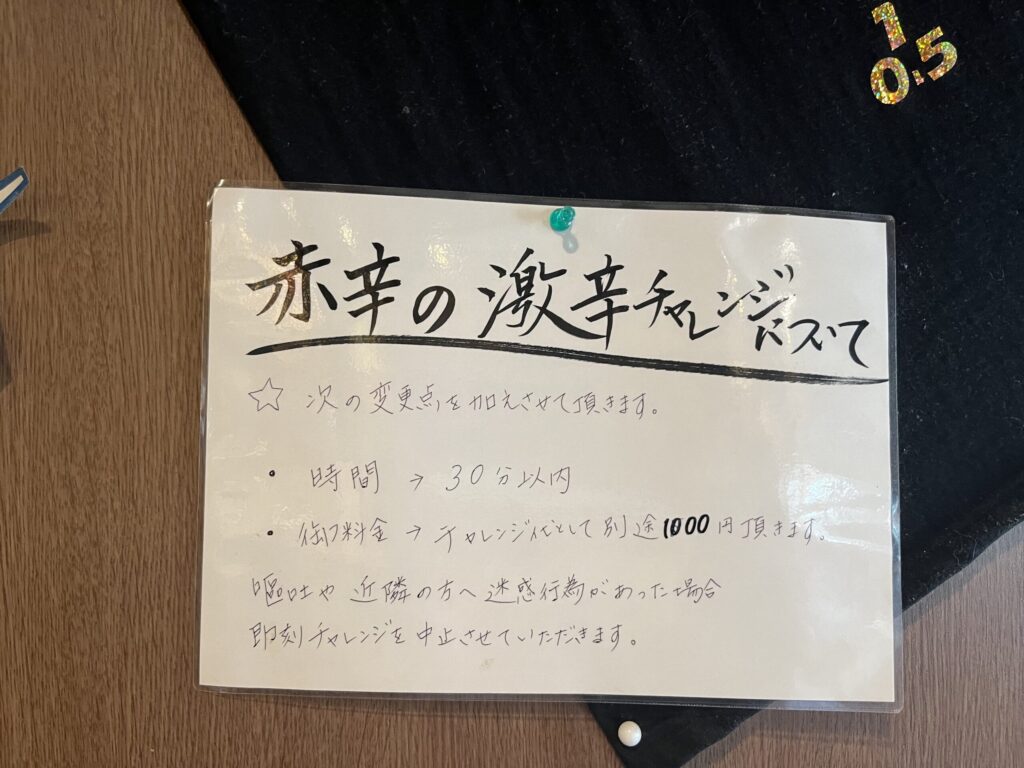 1
0.5
赤辛の激辛チャレンジについて
☆ 次の変更点を加えさせて頂きます。
・ 時間 → 30分以内
・ 御料金 → チャレンジ代として別途1000円頂きます。
嘔吐や近隣の方へ迷惑行為があった場合
即刻チャレンジを中止させていただきます。